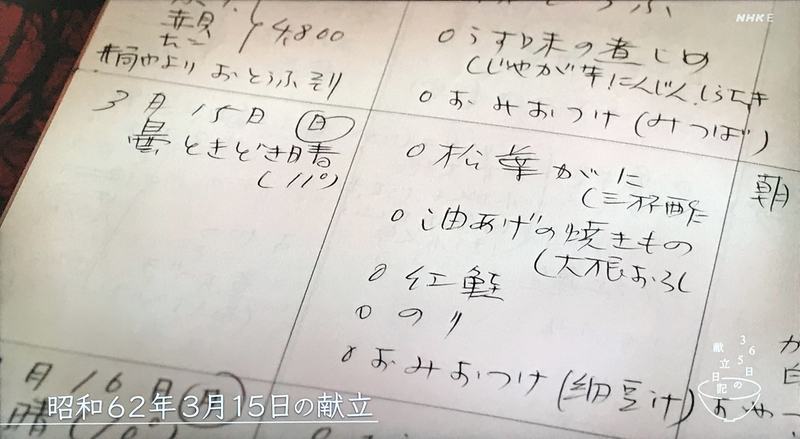 NHK E
赤貝
4,800
おとうふ
3月15日 (日)
曇ときどき晴
(11°)
月16日(月)
晴(10°)
○うす味の煮しめ
(じゃが芋、にんじん、しらたき
○おみおつけ(みつば)
○松葉がに
(三杯酢
○油あげの焼きもの
(大根おろし
○紅鮭
○のり
○おみおつけ(納豆汁)
朝
365日の
献立日記
昭和62年3月15日の献立